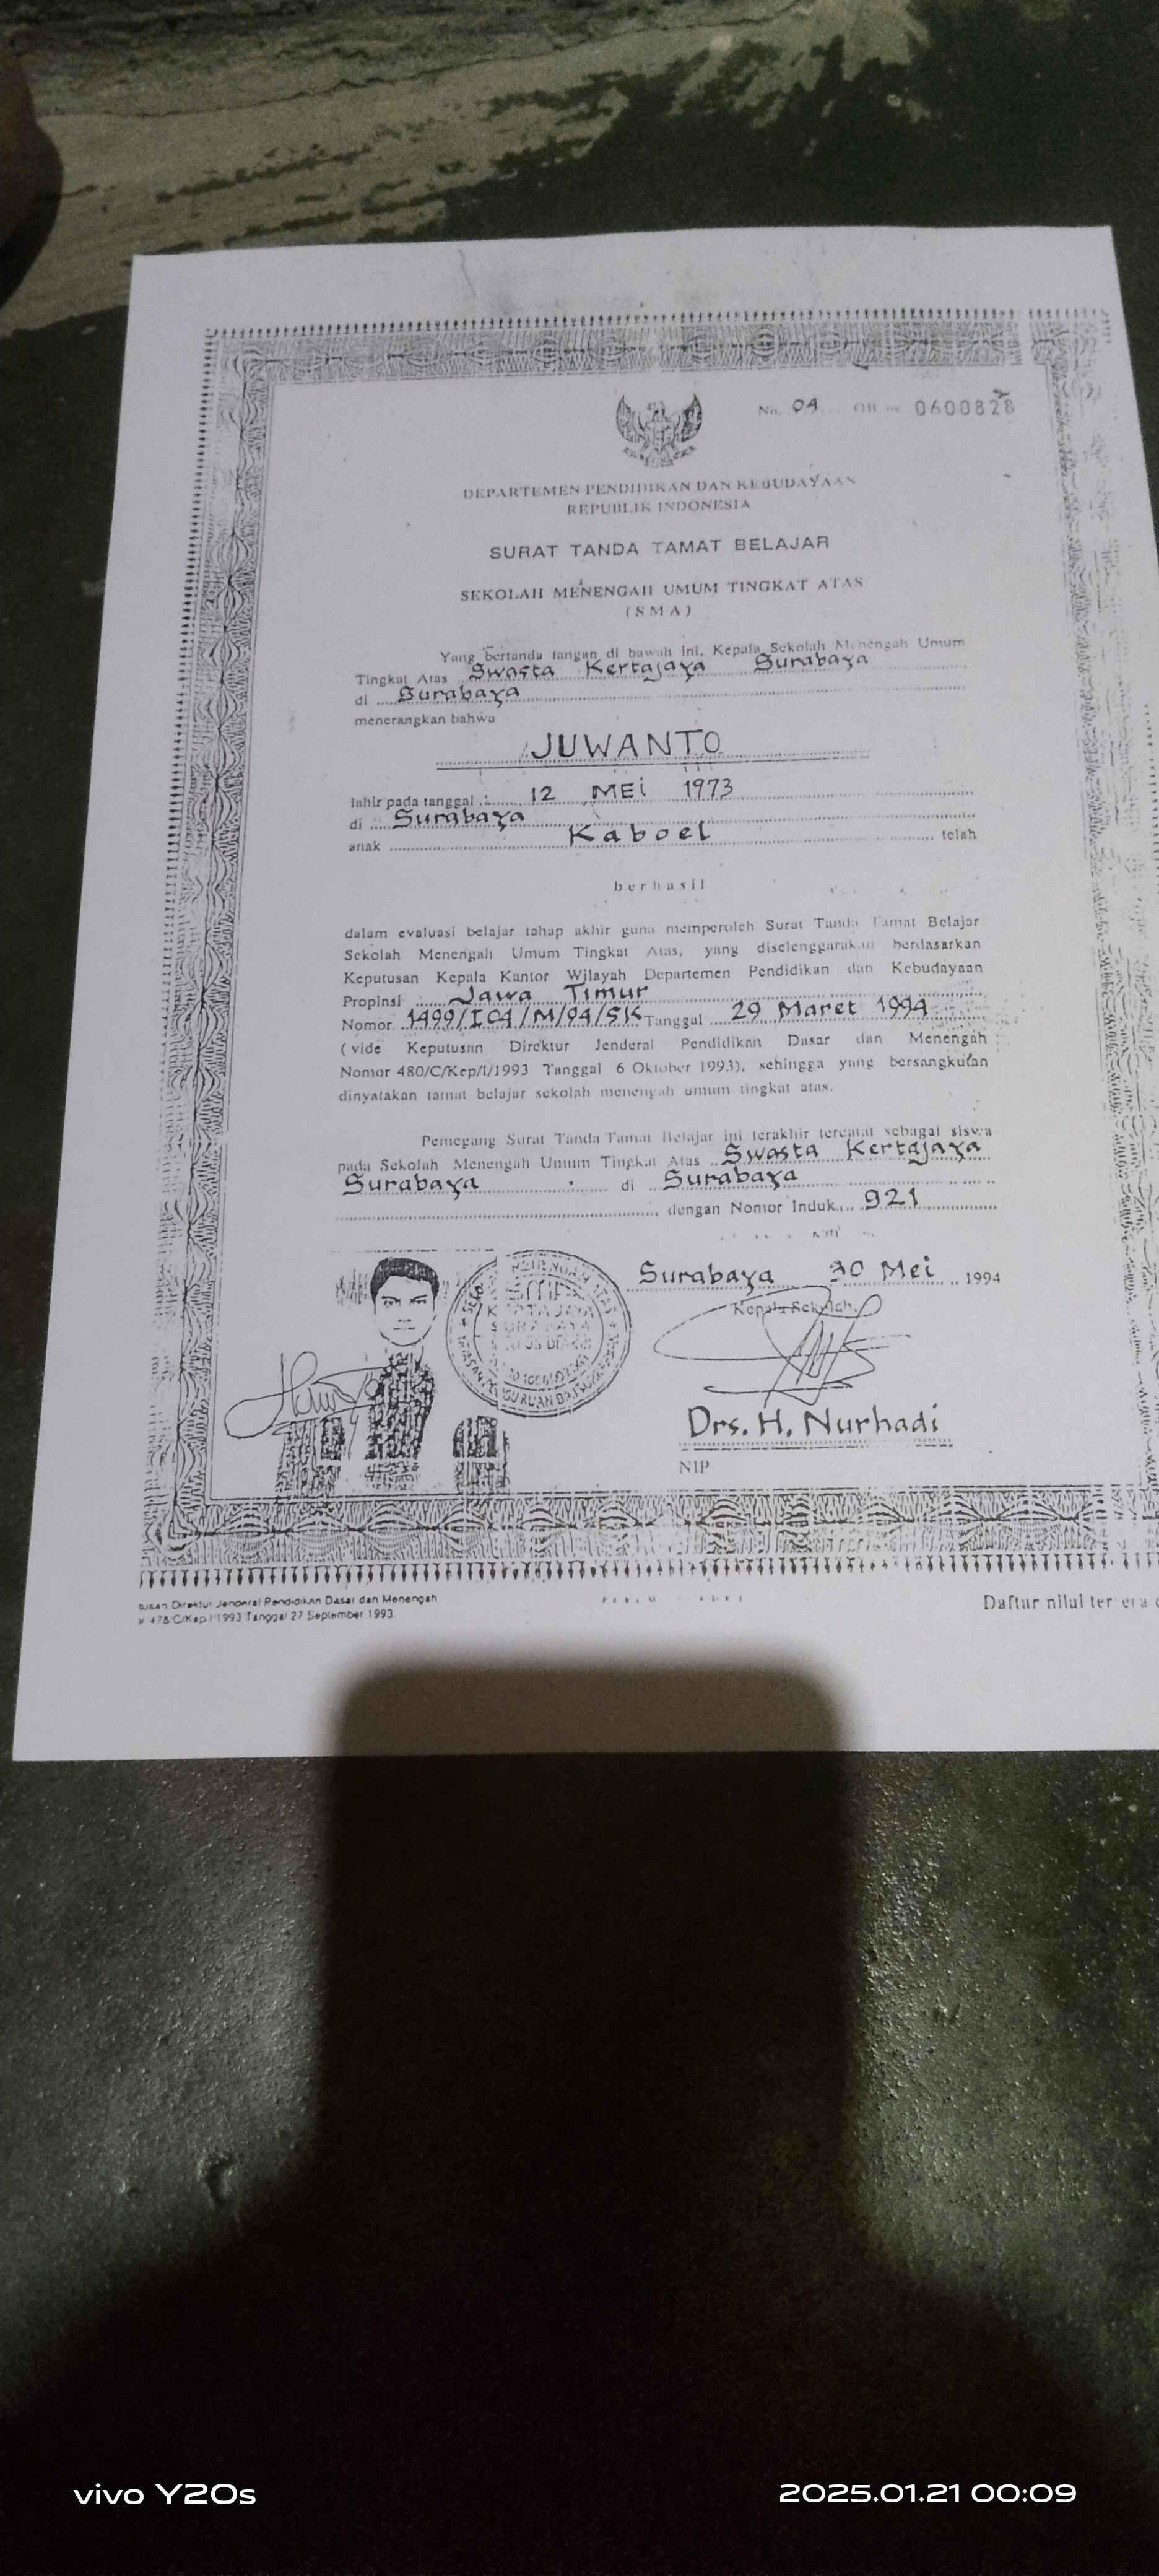 No. 04 OB oe 0600828
DEPARTEMEN PENDIDIKAN DAN KEBUDAYAAN
REPUBLIK INDONESIA
SURAT TANDA TAMAT BELAJAR
SEKOLAH MENENGAH UMUM TINGKAT ATAS
(SMA)
Yang bertanda tangan di bawah ini, Kepala Sekolah Menengah Umum
Tingkat Atas Swasta Kertajaya Surabaya
di Surabaya
menerangkan bahwa
JUWANTO
lahir pada tanggal : 12 MEi 1973
di Surabaya
anak Kaboel telah
berhasil
dalam evaluasi belajar tahap akhir guna memperoleh Surat Tanda Tamat Belajar
Sekolah Menengah Umum Tingkat Atas, yang diselenggarakan berdasarkan
Keputusan Kepala Kantor Wilayah Departemen Pendidikan dan Kebudayaan
Propinsi Jawa Timur
Nomor 1499/I04/M/94/SK Tanggal 29 Maret 1994
(vide Keputusan Direktur Jenderal Pendidikan Dasar dan Menengah
Nomor 480/C/Kep/I/1993 Tanggal 6 Oktober 1993), sehingga yang bersangkutan
dinyatakan tamat belajar sekolah menengah umum tingkat atas.
Pemegang Surat Tanda Tamat Belajar ini terakhir tercatat sebagai siswa
pada Sekolah Menengah Umum Tingkat Atas Swasta Kertajaya
Surabaya di Surabaya
dengan Nomor Induk 921
Surabaya 30 Mei 1994
Kepala Sekolah,
SURABAYA
Drs. H. Nurhadi
NIP
Direktur Jenderal Pendidikan Dasar dan Menengah
478/C/Kep/I/1993 Tanggal 27 September 1993
Daftar nilai tertera
vivo Y20s
2025.01.21 00:09